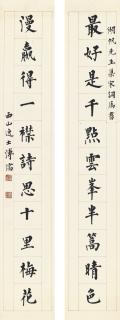 湖帆先生集宋詞
最好是千點雲峯半篙晴色
漫贏得一襟詩思十里梅花
西山逸士溥儒